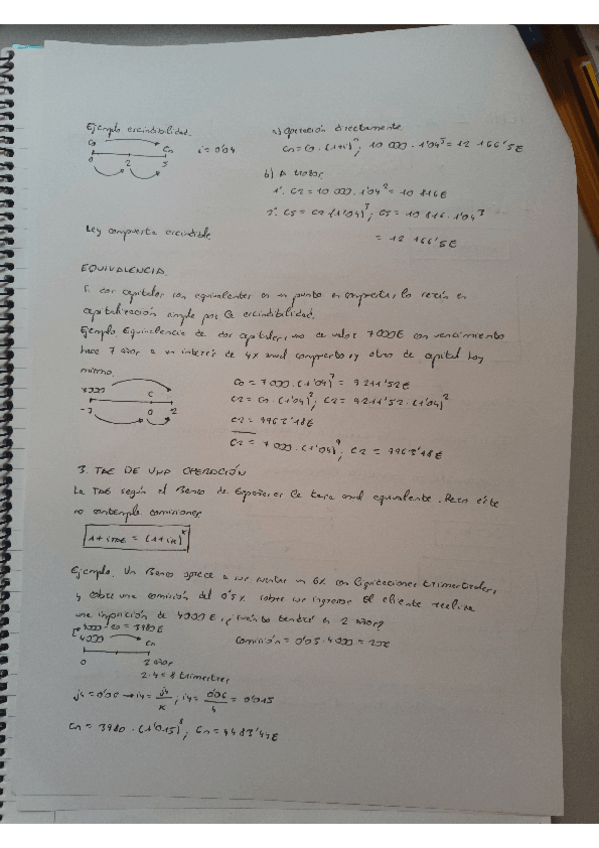 Ejemplo escindibilidad.
a) Operación directamente
Co Cn i = 0'04
Cn = Co · (1+i)^n; 10 000 · 1'04^5 = 12 166'5€
0 2 5
b) A trozos
1º. C2 = 10 000 · 1'04^2 = 10 816€
2º. C5 = C2 · (1'04)^3; C5 = 10 816 · 1'04^3
Ley compuesta escindible
= 12 166'5€
EQUIVALENCIA.
Si dos capitales son equivalentes en un punto en compuesta, lo serán en
capitalización simple por la escindibilidad.
Ejemplo. Equivalencia de dos capitales, uno de valor 7000€ con vencimiento
hace 7 años a un interés de 4% anual compuesto, y otro de capital hoy
mismo.
7000 C
-7 0 2
C0 = 7 000 · (1'04)^7 = 9211'52€
C2 = C0 · (1'04)^2; C2 = 9211'52 · (1'04)^2
C2 = 9963'18€
C2 = 7 000 · (1'04)^9; C2 = 9963'18€
3. TAE DE UNA OPERACIÓN
La TAE según el Banco de España es la tasa anual equivalente. Pero este
no contempla comisiones
1 + iTAE = (1 + ik)^k
Ejemplo. Un Banco ofrece a sus cuentas un 6% con liquidaciones trimestrales,
y cobra una comisión del 0'5% sobre sus ingresos. El cliente realiza
una imposición de 4000€, ¿cuánto tendrá en 2 años?
Co = 3980€
4000 Cn
Comisión = 0'05 · 4000 = 20€
0 2 años
2·4 = 8 trimestres
j4 = 0'06 → i4 = j4/k; i4 = 0'06/4 = 0'015
Cn = 3980 · (1'015)^8; Cn = 4483'42€